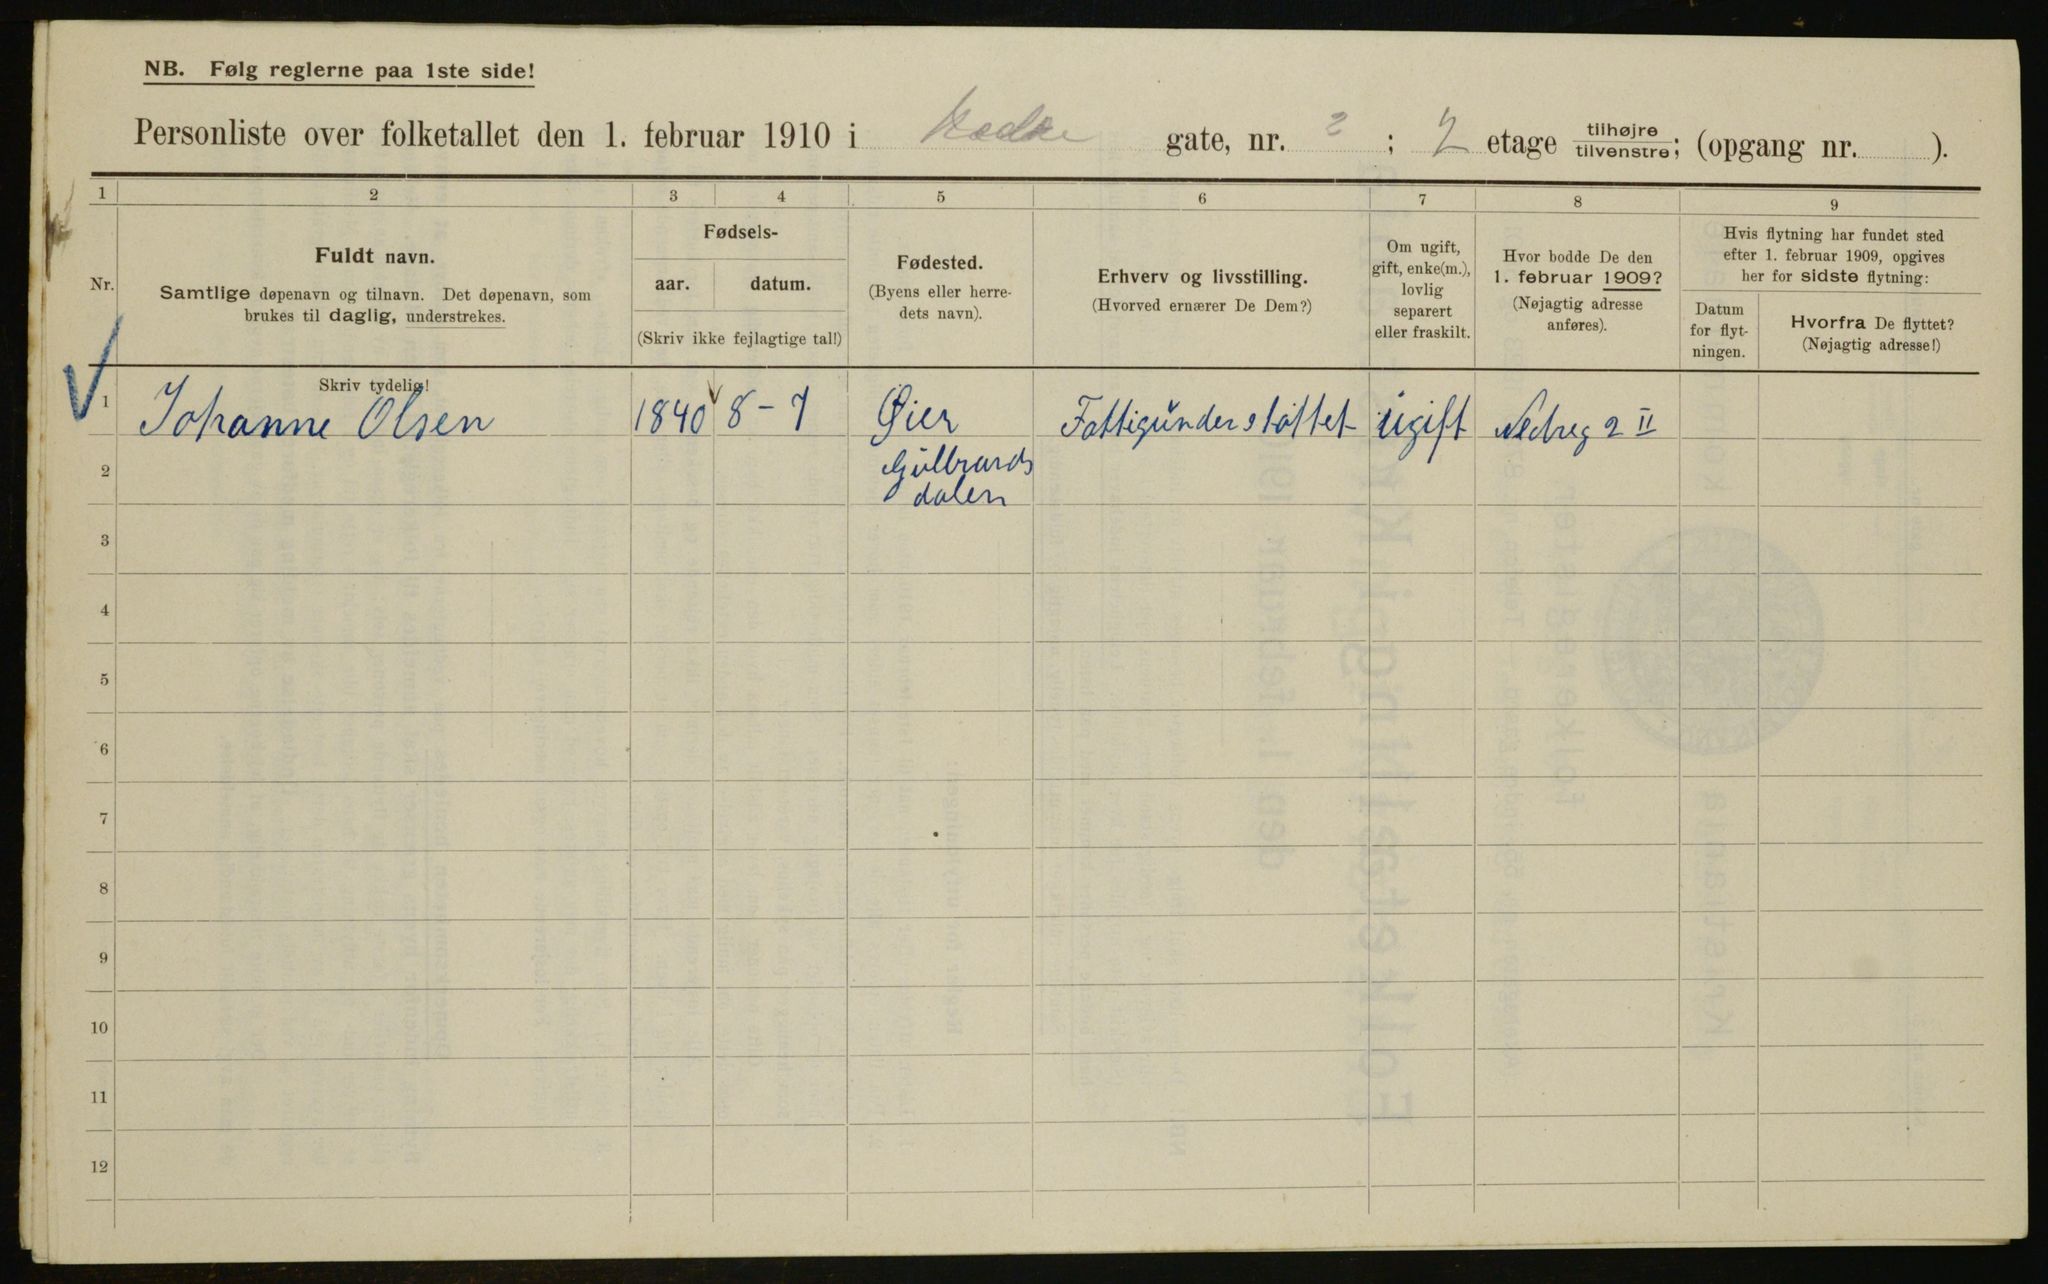 NB. Følg reglerne paa 1ste side!
Personliste over folketallet den 1. februar 1910 i Nedre gate, nr. 2 ; 2 etage tilhøjre tilvenstre; (opgang nr. ).
1 2 3 4 5 6 7 8 9
Nr.
Fuldt navn.
Samtlige døpenavn og tilnavn. Det døpenavn, som
brukes til daglig, understrekes.
Fødsels-
aar. datum.
(Skriv ikke fejlagtige tal!)
Fødested.
(Byens eller herre-
dets navn).
Erhverv og livsstilling.
(Hvorved ernærer De Dem?)
Om ugift,
gift, enke(m.),
lovlig
separert
eller fraskilt.
Hvor bodde De den
1. februar 1909?
(Nøjagtig adresse
anføres).
Hvis flytning har fundet sted
efter 1. februar 1909, opgives
her for sidste flytning:
Datum
for flyt-
ningen.
Hvorfra De flyttet?
(Nøjagtig adresse!)
Skriv tydelig!
1 Johanne Olsen 1840 8-7 Øier Fattigunderstøttet ugift Nedreg 2 II
2 Gulbrands
dalen
3
4
5
6
7
8
9
10
11
12